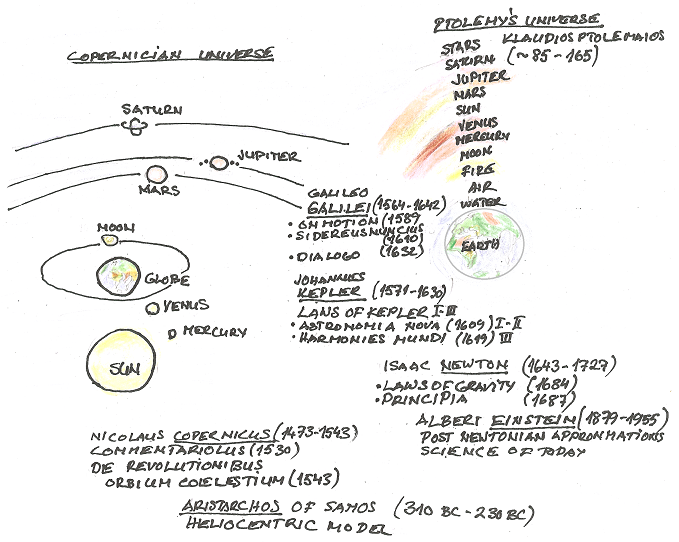 COPERNICIAN UNIVERSE
SATURN
JUPITER
MARS
MOON
GLOBE
VENUS
MERCURY
SUN
PTOLEMY'S UNIVERSE
KLAUDIOS PTOLEMAIOS
(~85-165)
STARS
SATURN
JUPITER
MARS
SUN
VENUS
MERCURY
MOON
FIRE
AIR
WATER
EARTH
GALILEO
GALILEI (1564-1642)
• ON MOTION (1589
• SIDEREUS NUNCIUS
(1610)
• DIALOGO (1632)
JOHANNES
KEPLER (1571-1630)
LANS OF KEPLER I-III
• ASTRONOMIA NOVA (1609) I-II
• HARMONIES MUNDI (1619) III
ISAAC NEWTON (1643-1727)
• LAWS OF GRAVITY (1684)
• PRINCIPIA (1687)
ALBERT EINSTEIN (1879-1955)
POST NEWTONIAN APPROXIMATIONS
SCIENCE OF TODAY
NICOLAUS COPERNICUS (1473-1543)
COMMENTARIOLUS (1530)
DE REVOLUTIONIBUS
ORBIUM COELESTIUM (1543)
ARISTARCHOS OF SAMOS (310 BC-230 BC)
HELIOCENTRIC MODEL